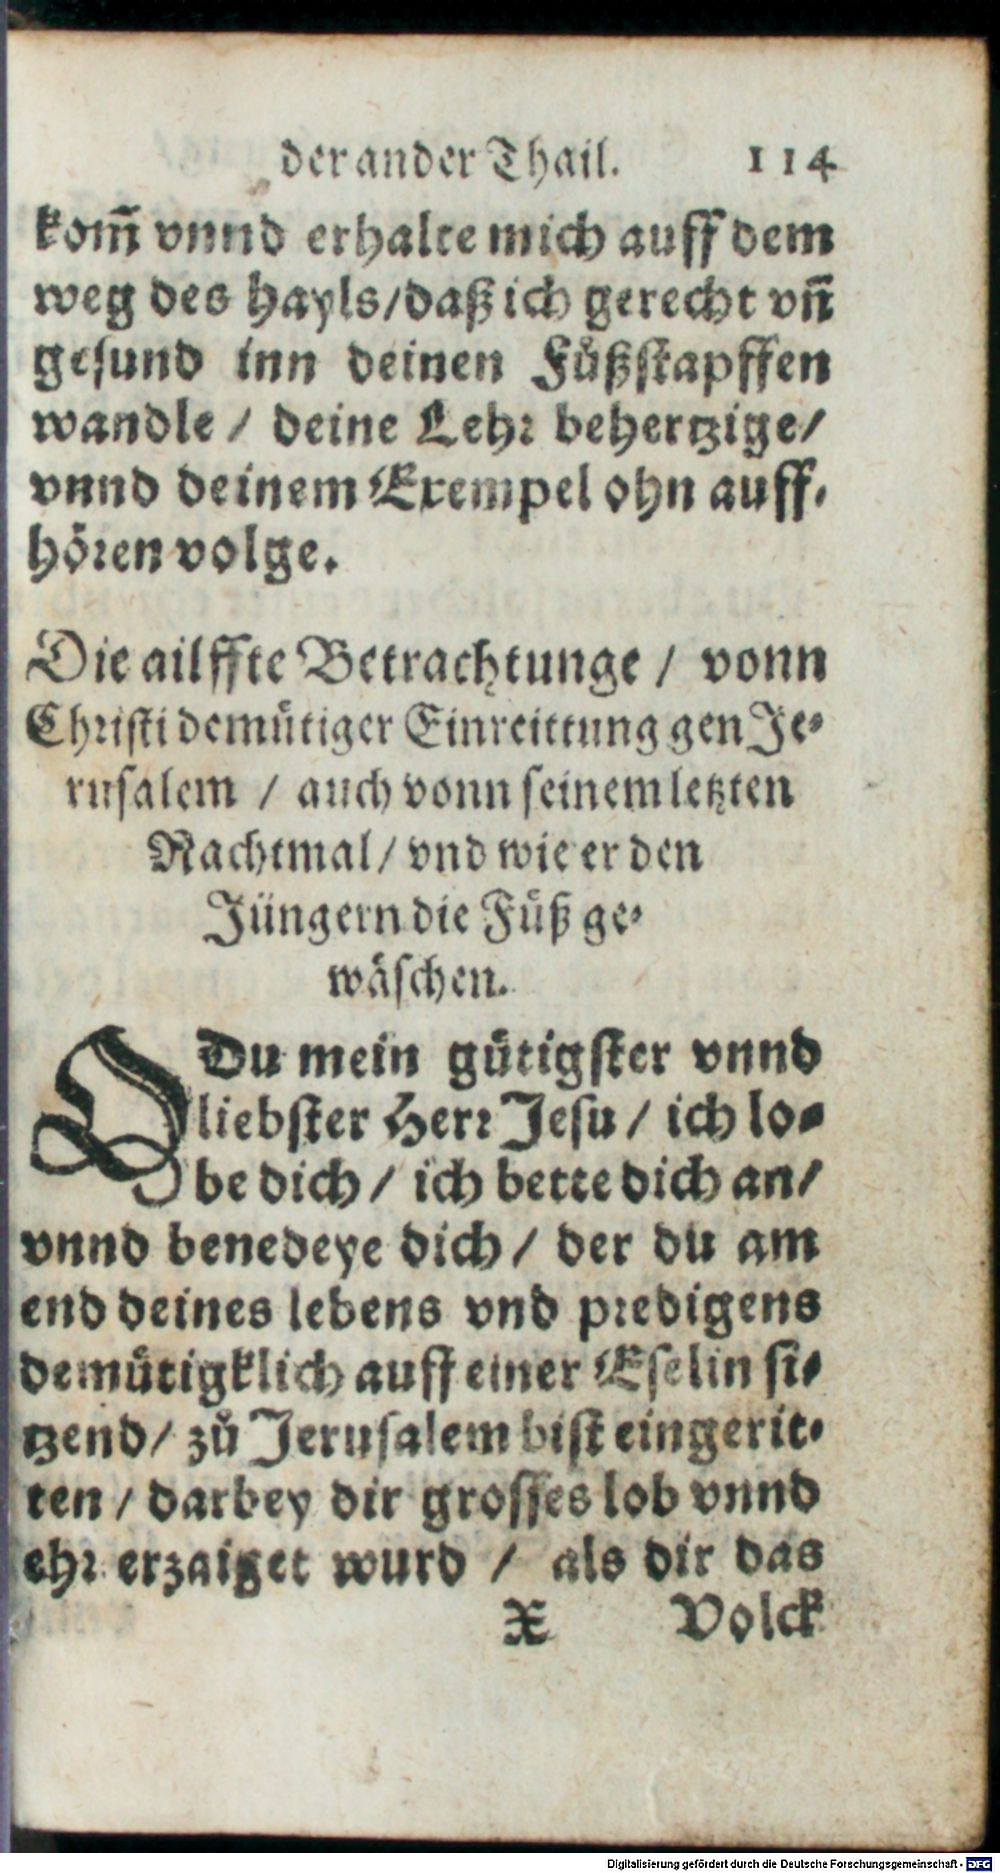 der ander Thail. 114
kom̃ vnnd erhalte mich auff dem
weg des hayls/daß ich gerecht vñ
gesund inn deinen Fůßstapffen
wandle / deine Lehr behertzige/
vnnd deinem Exempel ohn auff-
hören volge.
Die ailffte Betrachtunge / vonn
Christi demütiger Einreittung gen Je-
rusalem / auch vonn seinem letzten
Nachtmal/ vnd wie er den
Jüngern die Füß ge-
wäschen.
O Du mein gütigster vnnd
liebster Herr Jesu / ich lo-
be dich / ich bette dich an/
vnnd benedeye dich / der du am
end deines lebens vnd predigens
demütigklich auff einer Eselin si-
tzend/ zů Jerusalem bist eingerit-
ten / darbey dir grosses lob vnnd
ehr erzaiget wurd / als dir das
X Volck
Digitalisierung gefördert durch die Deutsche Forschungsgemeinschaft - DFG